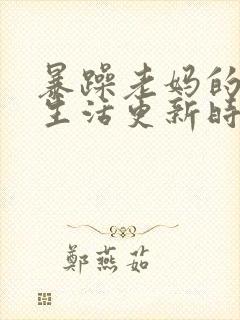 暴躁老妈的
生活更新时
鄭燕茹